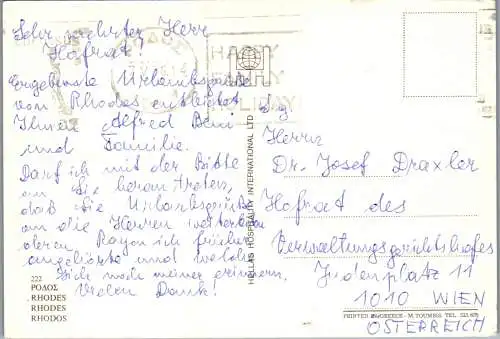 Sehr geehrter Herr
Hofrat!
Ergebenste Urlaubsgrüße
von Rhodos entbietet
Ihnen Alfred
und Familie.
Darf ich mit der Bitte
an Sie heran treten,
daß Sie Urlaubsgrüße
an die Herren weiterleiten
deren Rayon ich früher
angehörte und welche
sich noch meiner erinnern.
Vielen Dank!
222
ΡΟΔΟΣ
RHODES
RHODES
RHODOS
HELLAS HOSPITALITY INTERNATIONAL LTD
HAPPY
FAMILY
HOLIDAY
Herrn
Dr. Josef Draxler
Hofrat des
Verwaltungsgerichtshofes
Judenplatz 11
1010 WIEN
ÖSTERREICH
PRINTED IN GREECE - M. TOUMBIS, TEL.